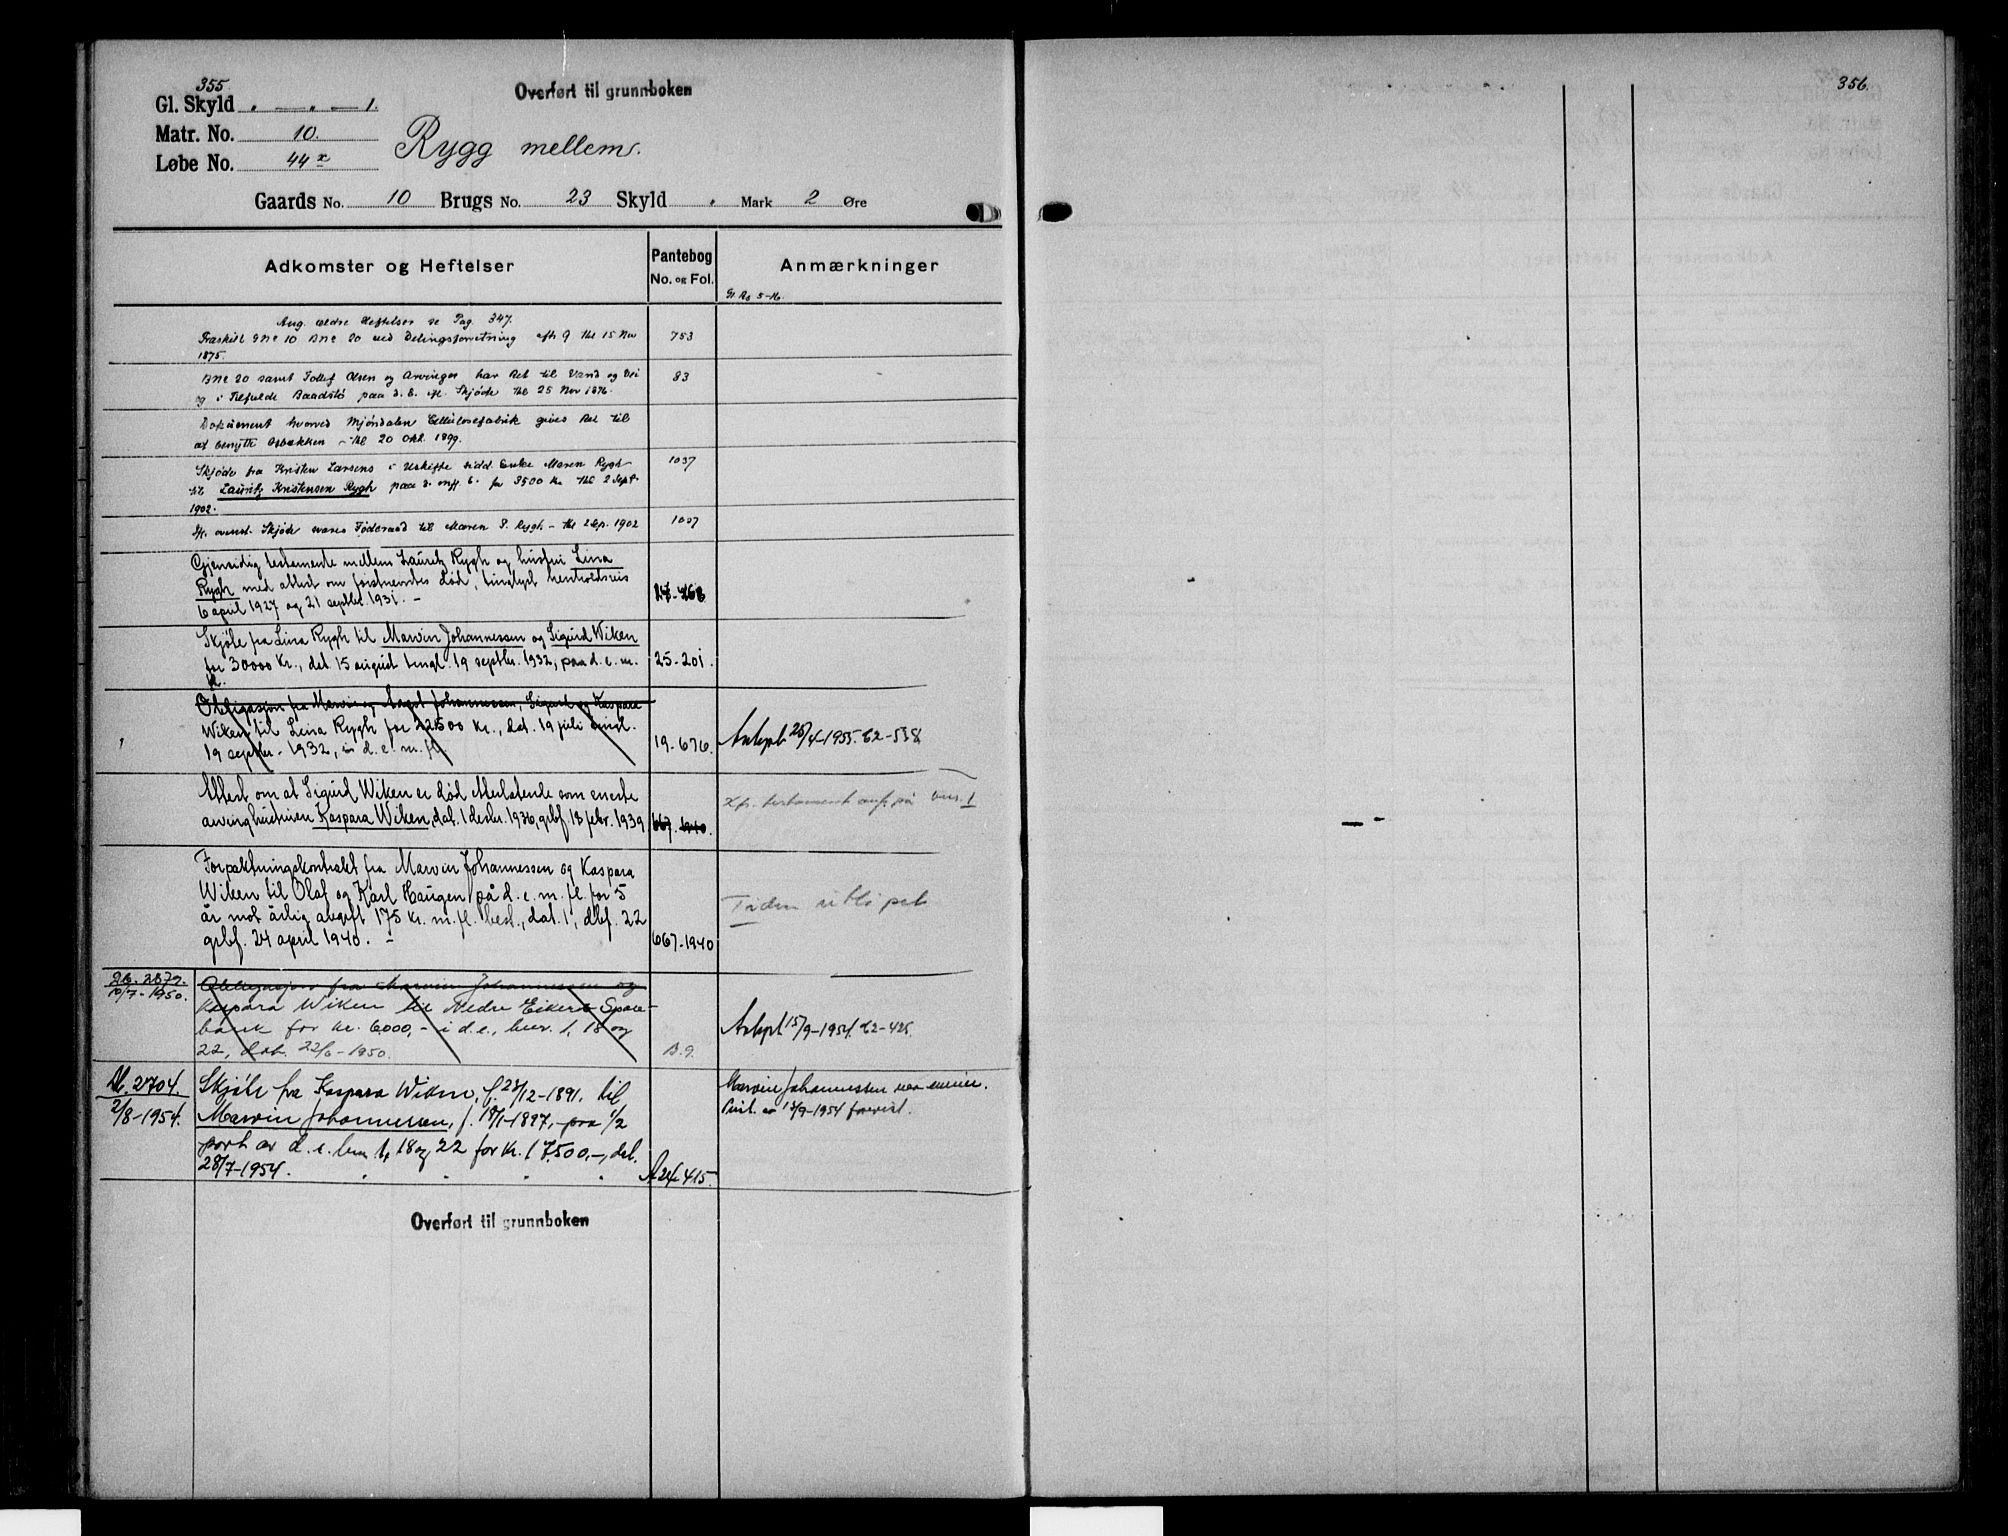 355
Overført til grunnboken
Gl. Skyld " — " — 1.
Matr. No. 10.
Løbe No. 44 x
Rygg mellem.
Gaards No. 10 Brugs No. 23 Skyld . Mark 2 Øre
Adkomster og Heftelser
Pantebog
No. og Fol.
Anmærkninger
Gl. Rg 5-16.
Ang. ældre Heftelser se Pag. 347.
Fraskilt GNo 10 BNo 20 ved Delingsforretning afh. 9 thl 15 Nov
1875. 753
BNo 20 samt Tollef Olsen og Arvinger har Ret til Vand og Vei
og i Tilfælde Baadstø paa d. E. ifl. Skjøde thl 25 Nov 1876. 83
Dokument hvorved Mjøndalen Cellulosefabrik gives Ret til
at benytte Osbækken - thl 20 Okt. 1899.
Skjøde fra Kristen Larsens i Uskifte sidd. Enke Maren Rygh 1037
til Lauritz Kristensen Rygh paa d. m. fl. E. for 3500 Kr. thl 2 Sept.
1902.
Ifl. ovenst. Skjøde svares Føderaad til Maren P. Rygh - thl 2 Sep. 1902 1037
Gjensidig testamente mellem Lauritz Rygh og hustru Lina
Rygh med attest om førstnevntes død, tinglyst henholdsvis
6 april 1927 og 21 septbr. 1931. - 17-768
Skjøte fra Lina Rygh til Marvin Johannessen og Sigurd Wiken
for 30000 Kr., dat. 15 august tingl. 19 septbr. 1932, paa d. e. m. 25-201.
fl.
Obligasjon fra Marvin og Aagot Johannessen, Sigurd og Kaspara
Wiken til Lina Rygh for 22500 Kr., dat. 19 juli tingl.
19 septbr. 1932, i d. e. m. fl. 19-676. Avlyst 25/4-1955. C2-538
Attest om at Sigurd Wiken er død etterlatende som eneste
arving hustruen Kaspara Wiken, dat. 1 desbr. 1936, grbf. 18 febr. 1939 667. 1940.
Kfr. testament anf. på bnr. 1
Forpaktningskontrakt fra Marvin Johannessen og Kaspara
Wiken til Olaf og Karl Haugen på d. e. m. fl. for 5
år mot årlig avgift 175 Kr. m. fl. best., dat. 1, dbf. 22
grbf. 24 april 1940. - 667-1940
Tiden utløpet
26. 2879.
10/7-1950.
Obligasjon fra Marvin Johannessen og
Kaspara Wiken til Nedre Eikers Spare-
bank for kr. 6000,- i d. e., bnr. 1, 18 og
22, dat. 22/6-1950. B.9.
Avlyst 15/9-1954. C2-425
2704.
2/8-1954.
Skjøte fra Kaspara Wiken, f. 28/12-1891. til
Marvin Johannessen, f. 18/1-1897, - paa 1/2
part av d. e. bnr 1, 18 og 22 for Kr. 17.500,-, dat.
28/7-1954. A 24-415.
Marvin Johannessen
13/9-1954
Overført til grunnboken
356.